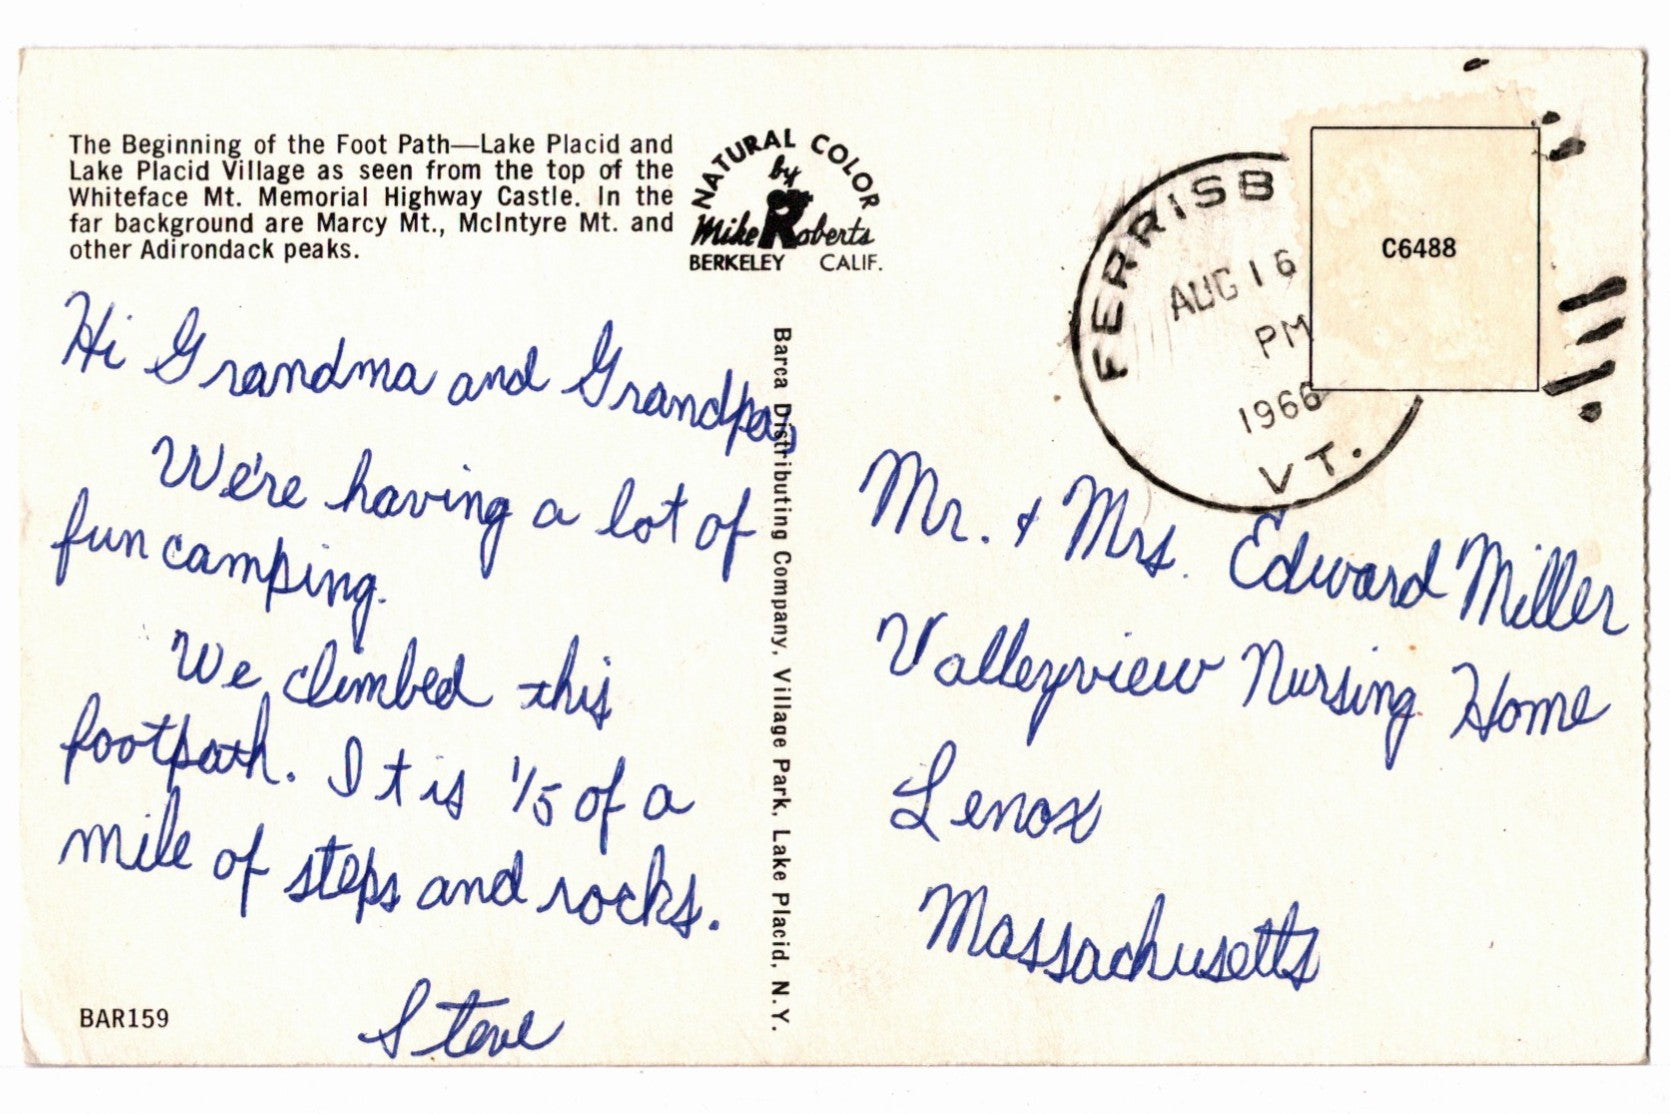 The Beginning of the Foot Path—Lake Placid and
Lake Placid Village as seen from the top of the
Whiteface Mt. Memorial Highway Castle. In the
far background are Marcy Mt., McIntyre Mt. and
other Adirondack peaks.
NATURAL COLOR
by
Mike Roberts
BERKELEY CALIF.
Hi Grandma and Grandpa
We're having a lot of
fun camping.
We climbed this
footpath. It is 1/5 of a
mile of steps and rocks.
Steve
BAR159
Barca Distributing Company, Village Park, Lake Placid, N.Y.
FERRISB
AUG 16
PM
1966
VT.
C6488
Mr. & Mrs. Edward Miller
Valleyview Nursing Home
Lenox
Massachusetts